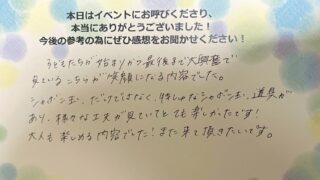 本日はイベントにお呼びくださり、
本当にありがとうございました！
今後の参考の為にぜひ感想をお聞かせください！
子どもたちが始まりから最後まで大興奮で
見ているこちらが笑顔になる内容でした。
シャボン玉、だけではなく、特しゅなシャボン玉、道具が
あり、様々な工夫が見ていてとても楽しかったです！
大人も楽しめる内容でした！また来て頂きたいです。